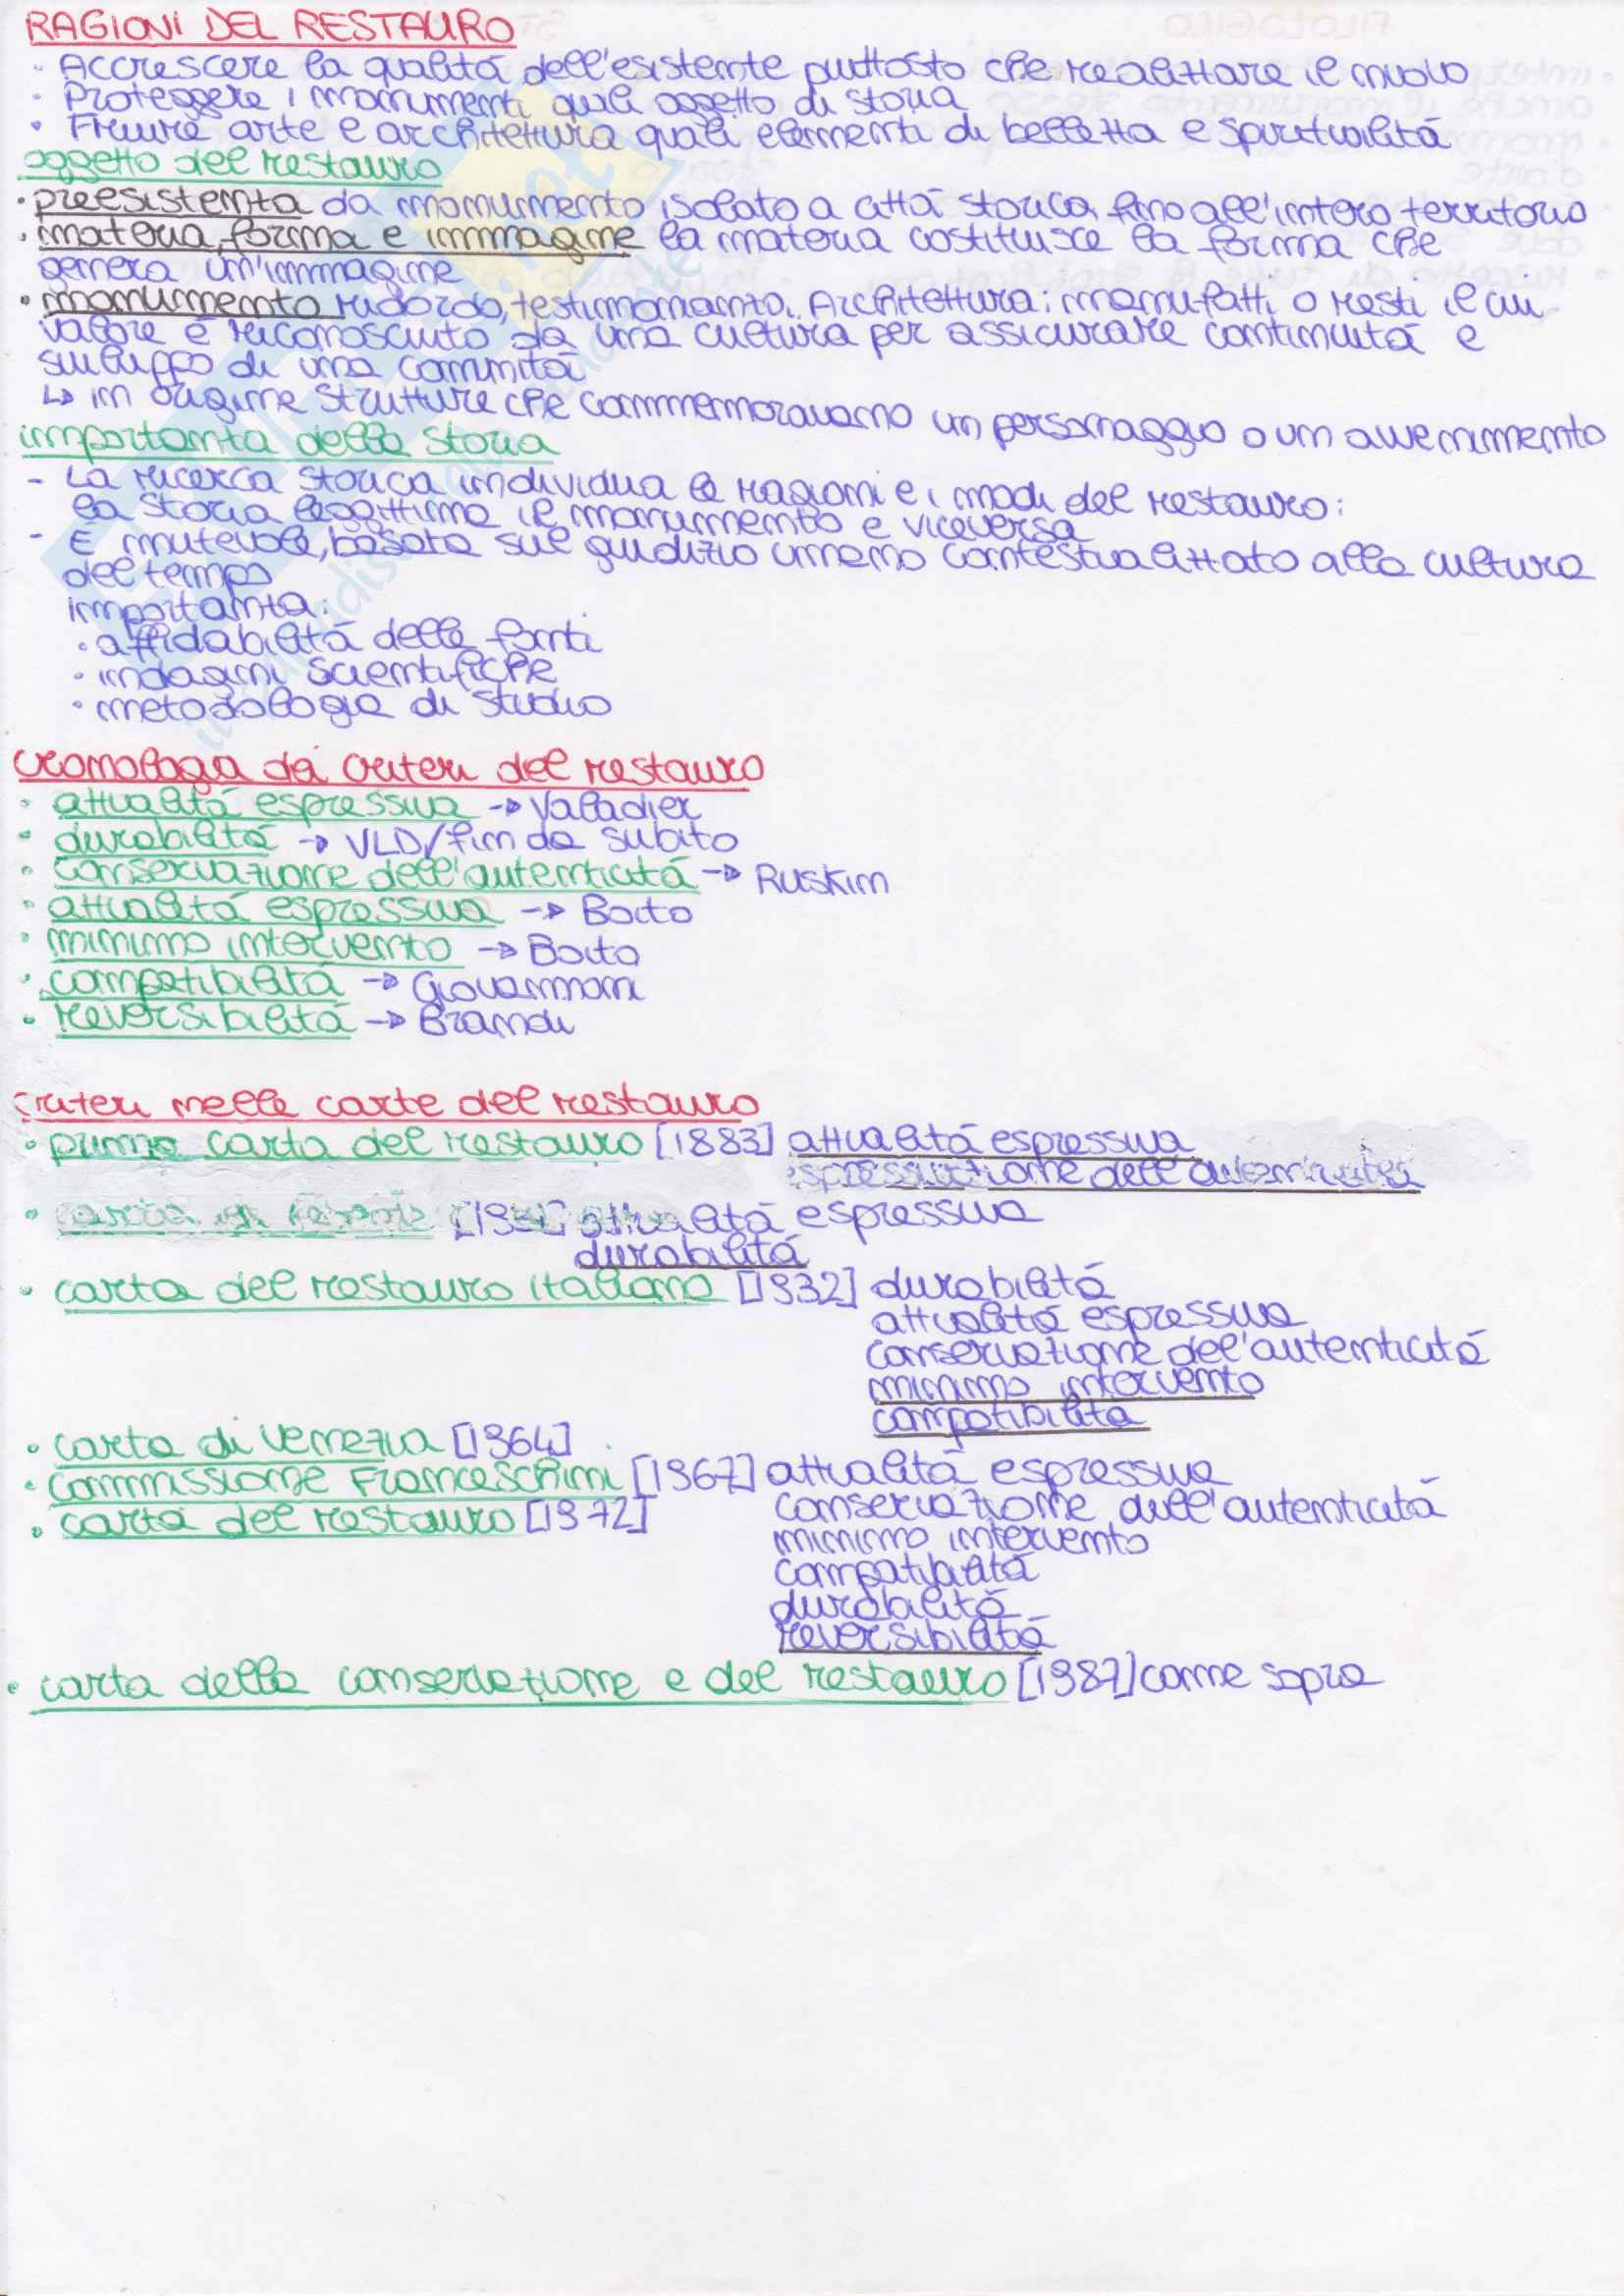 RAGIONI DEL RESTAURO
· Accrescere la qualità dell'esistente piuttosto che realizzare il nuovo
· Proteggere i monumenti quali oggetto di storia
· Fruire arte e architettura quali elementi di bellezza e spiritualità
oggetto del restauro
· preesistenza da monumento isolato a città storica, fino all'intero territorio
· materia, forma e immagine la materia costituisce la forma che
genera un'immagine
· monumento ricordo, testimonianza. Architettura: manufatti o resti il cui
valore è riconosciuto da una cultura per assicurare continuità e
sviluppo di una comunità
↳ in origine strutture che commemoravano un personaggio o un avvenimento
importanza della storia
- La ricerca storica individua le ragioni e i modi del restauro:
la storia legittima il monumento e viceversa
- È mutevole, basata sul giudizio umano contestualizzato alla cultura
del tempo
importanza:
· affidabilità delle fonti
· indagini scientifiche
· metodologia di studio
cronologia dei criteri del restauro
· attualità espressiva → Valadier
· durabilità → VLD/fin da subito
· conservazione dell'autenticità → Ruskin
· attualità espressiva → Boito
· minimo intervento → Boito
· compatibilità → Giovannoni
· reversibilità → Brandi
criteri nelle carte del restauro
· prima carta del restauro [1883] attualità espressiva
dell'autenticità
· carta di [1931] attualità espressiva
durabilità
· carta del restauro italiana [1932] durabilità
attualità espressiva
conservazione dell'autenticità
minimo intervento
compatibilità
· carta di Venezia [1964]
· commissione Franceschini [1967] attualità espressiva
· carta del restauro [1972] conservazione dell'autenticità
minimo intervento
compatibilità
durabilità
reversibilità
· carta della conservazione e del restauro [1987] come sopra